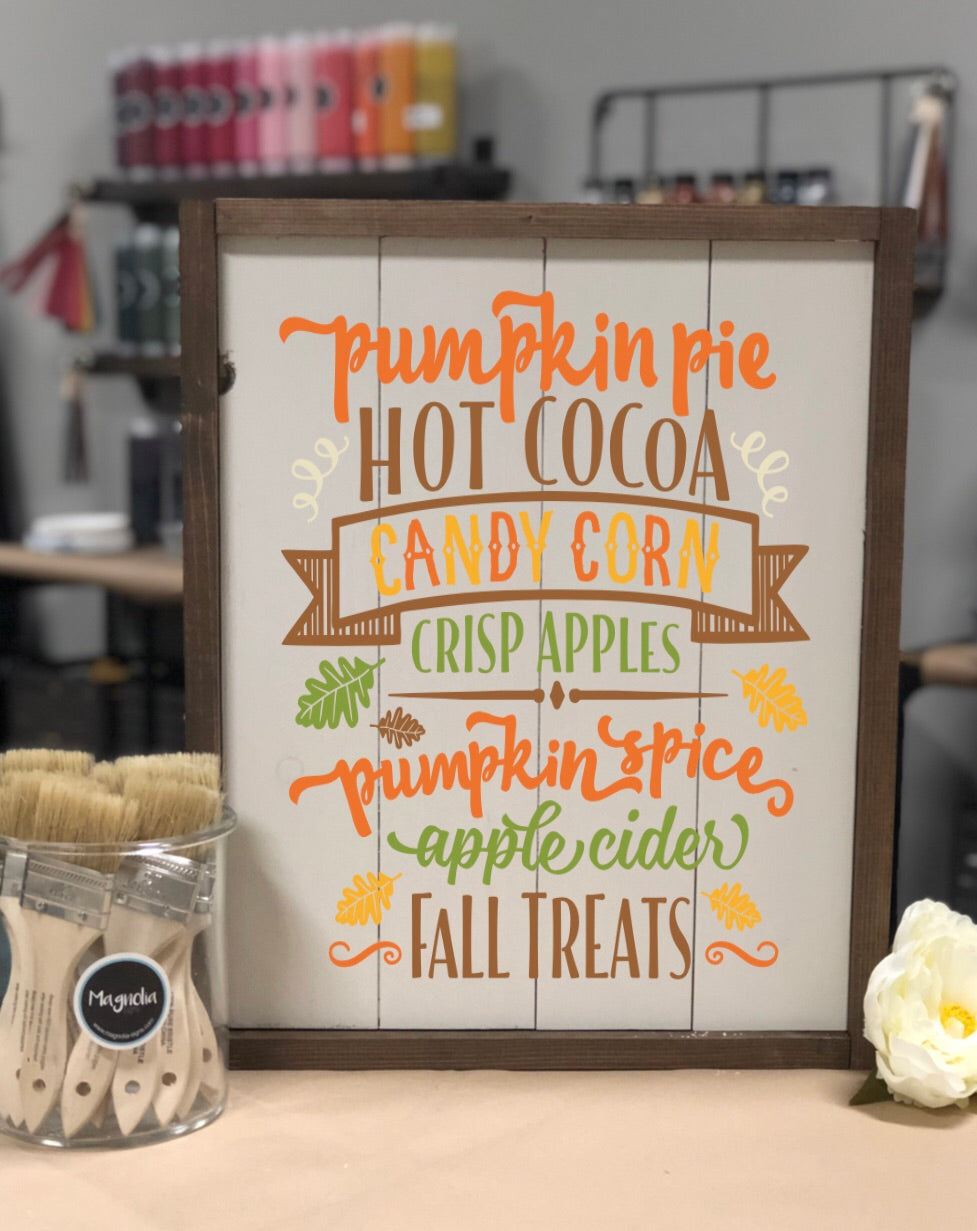 pumpkin pie
HOT COCOA
CANDY CORN
CRISP APPLES
pumpkin spice
apple cider
FALL TREATS
Magnolia
www.magnolia-signs.com